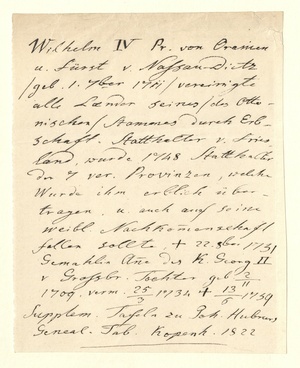 Wilhelm IV Pr. von Oranien
u. Fürst v. Nassau-Dietz
/geb. 1. 7ber 1711/ vereinigte
alle Laender seines/des Otto-
nischen/Stammes durch Erb-
schaft. Statthalter v. Fries-
land, wurde 1748 Statthalter
der 7 ver. Provinzen, welche
Würde ihm erblich über-
tragen, u. auch auf seine
weibl. Nachkommenschaft
fallen sollte, + 22. 8ber 1751
Gemahlin Ane des K. Georg II
v. Grossbr. Tochter geb. 2/11
1709. verm. 25/3 1734 + 13/1 1759
Supplem. Tafeln zu Joh. Hubners
Geneal. Tab. Kopenh. 1822